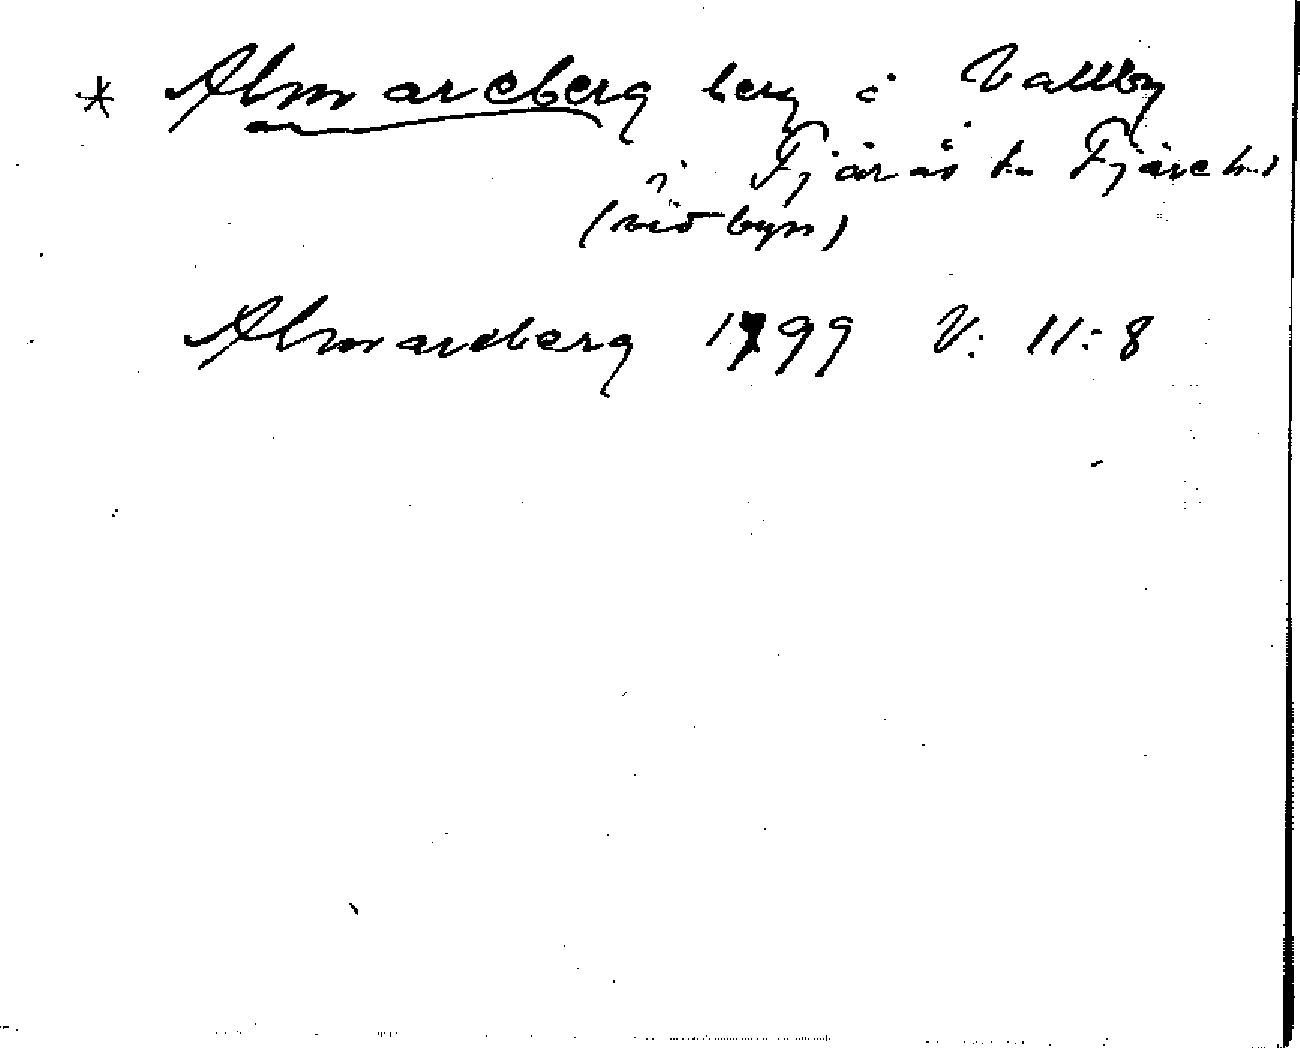 * Almareberg berg å Vallby
i Fjärås sn Fjäre hd
(vid byn)
Almareberg 1799 V: 11:8